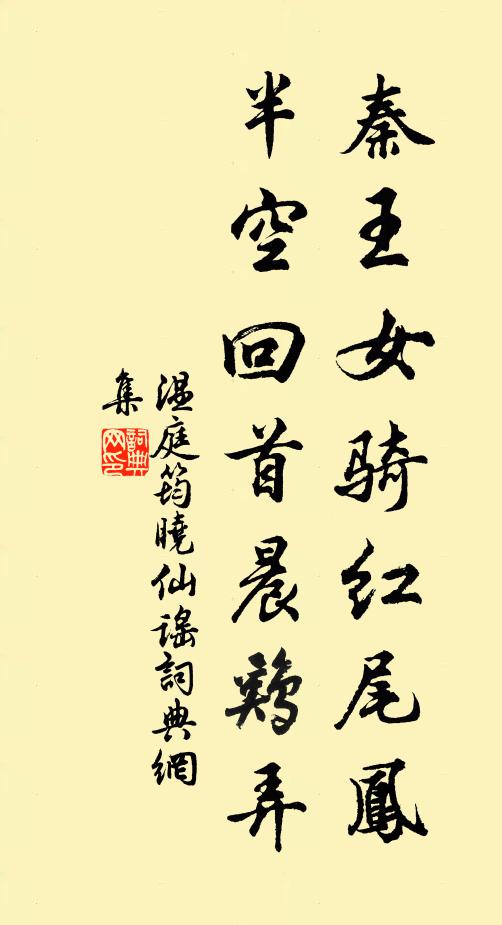 秦王女骑红尾鳳
半空回首晨鷄弄
温庭筠曉仙谣詞典網
集
詞典
网印